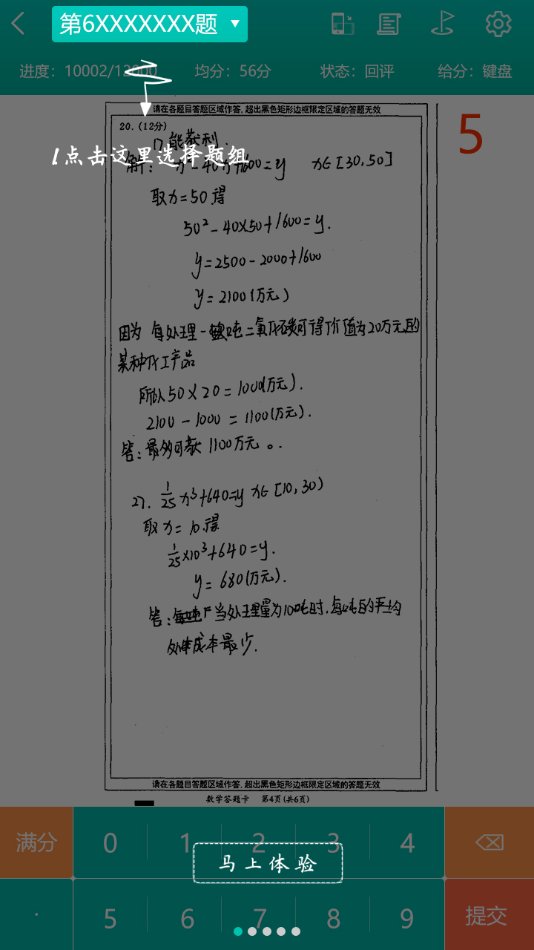 第6XXXXXXX题
进度：10002/12000 均分：56分 状态：回评 给分：键盘
请在各题目答题区域作答,超出黑色矩形边框限定区域的答题无效
5
20.（12分）
1点击这里选择题组
x∈[30,50]
取x=50得
50²-40×50+1600=y.
y=2500-2000+1600
y=2100(万元)
因为 每处理一吨二氧化碳可得价值为20万元的
某种化工产品
所以50×20=1000(万元).
2100-1000=1100(万元).
答:最多可获1100万元。
27. 1/25 x³+640=y x∈[10,30)
取x=10得
1/25×10³+640=y.
y=680(万元).
当处理量为10吨时,每吨的平均
处理成本最少.
请在各题目答题区域作答,超出黑色矩形边框限定区域的答题无效
数学答题卡 第4页(共6页)
满分 0 1 2 3 4
马上体验
. 5 6 7 8 9 提交